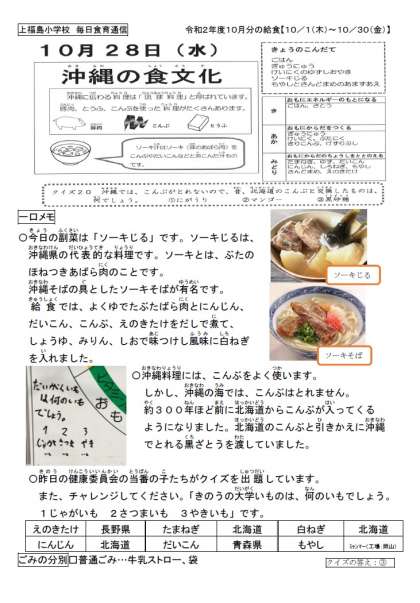 上福島小学校 毎日食育通信
令和2年度10月分の給食【10/1(木)~10/30(金)】
10月28日(水)
沖縄の食文化
沖縄に伝わる料理は「琉球料理」と呼ばれています。
豚肉、とうふ、こんぶを使った料理がたくさんあります。
豚肉
こんぶ
とうふ
きょうのこんだて
ごはん
ぎゅうにゅう
けいにくのゆずしおやき
ソーキじる
もやしとさんどまめのあまずあえ
おもにエネルギーのもとになる
き
ごはん、さとう
おもにからだをつくる
あか
ぎゅうにゅう
おもにからだのちょうしをととのえる
みどり
クイズ20 沖縄では、こんぶがとれないので、昔、北海道のこんぶと交換したものは、
何でしょう。 ①にがうり ②マンゴー ③黒砂糖
一口メモ
○今日の副菜は「ソーキじる」です。ソーキじるは、
沖縄県の代表的な料理です。ソーキとは、ぶたの
ほねつきあばら肉のことです。
沖縄そばの具としたソーキそばが有名です。
給食では、よくゆでたぶたばら肉とにんじん、
だいこん、こんぶ、えのきたけをだしで煮て、
しょうゆ、みりん、しおで味つけし風味に白ねぎ
を入れました。
ソーキじる
ソーキそば
だいがくいも
は何のいも
でしょう。
1 2 3
じゃが さつま やき
おも
○沖縄料理には、こんぶをよく使います。
しかし、沖縄の海では、こんぶはとれません。
約300年ほど前に北海道からこんぶが入ってくる
ようになりました。北海道のこんぶと引きかえに沖縄
でとれる黒ざとうを渡していました。
○昨日の健康委員会の当番の子たちがクイズを出題しています。
また、チャレンジしてください。「きのうの大学いものは、何のいもでしょう。
1じゃがいも 2さつまいも 3やきいも」です。
えのきたけ 長野県 たまねぎ 北海道 白ねぎ 北海道
にんじん 北海道 だいこん 青森県 もやし ミャンマー(工場:岡山)
ごみの分別 □普通ごみ…牛乳ストロー、袋
クイズの答え:③